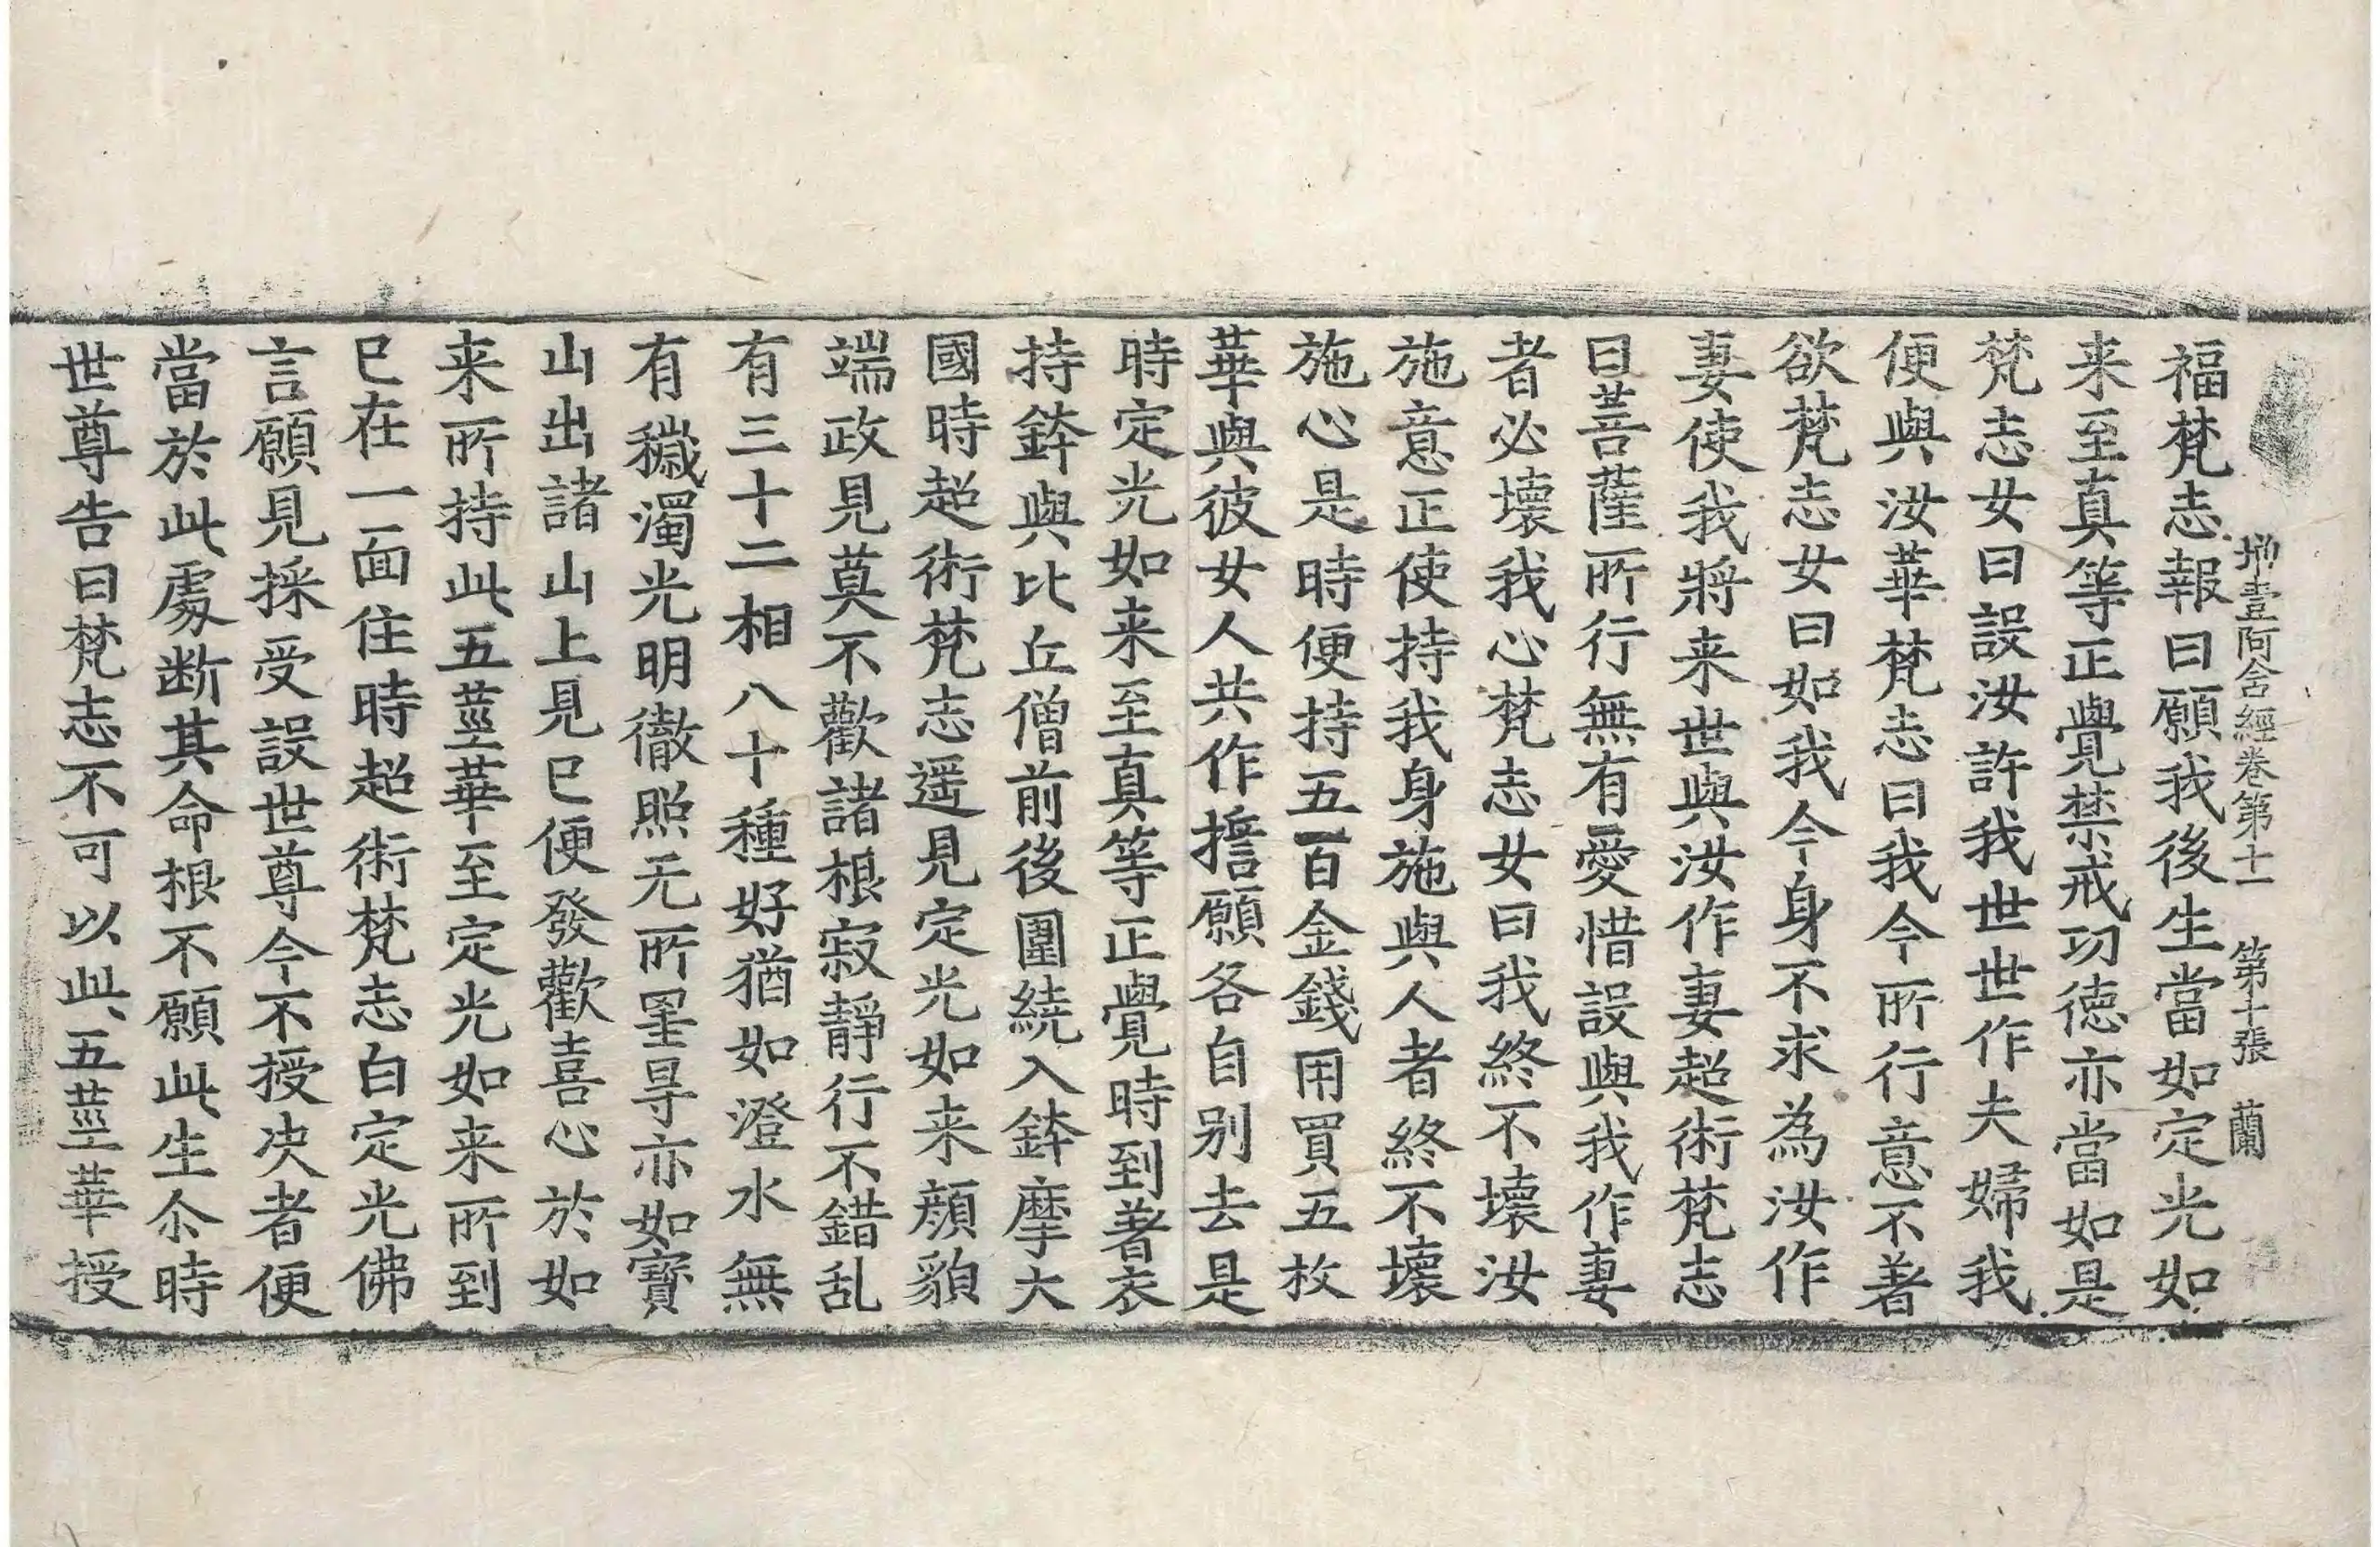 增壹阿含經卷第十一 第十張 蘭
福梵志報曰願我後生當如定光如
来至真等正覺禁戒功德亦當如是
梵志女曰設汝許我世世作夫婦我
便與汝華梵志曰我今所行意不著
欲梵志女曰如我今身不求為汝作
妻使我將来世與汝作妻超術梵志
曰菩薩所行無有愛惜設與我作妻
者必壞我心梵志女曰我終不壞汝
施意正使持我身施與人者終不壞
施心是時便持五百金錢用買五枚
華與彼女人共作擔願各自別去是
時定光如来至真等正覺時到著衣
持鉢與比丘僧前後圍繞入鉢摩大
國時超術梵志遥見定光如来顔貌
端政見莫不歡諸根寂靜行不錯乱
有三十二相八十種好猶如澄水無
有穢濁光明徹照无所罣㝵亦如寶
山出諸山上見已便發歡喜心於如
来所持此五莖華至定光如来所到
已在一面住時超術梵志白定光佛
言願見採受設世尊今不授决者便
當於此處断其命根不願此生尒時
世尊告曰梵志不可以此五莖華授